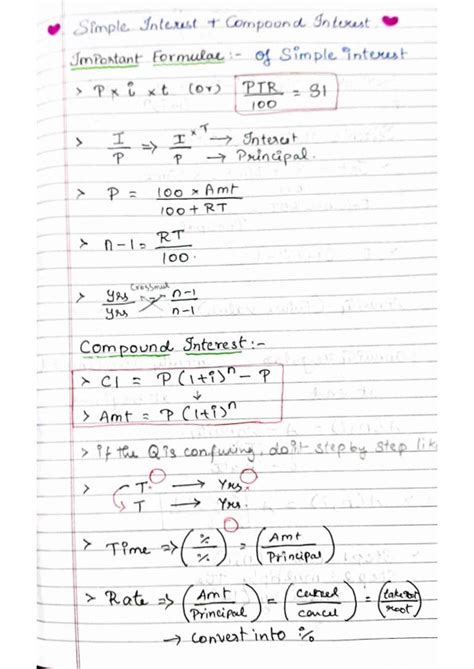 Simple Interest + Compound Interest
Important Formulae :- of Simple interest
> P x i x t (or) PTR/100 = SI
> I/P => I x T/P → Interest → Principal.
> P = 100 x Amt / 100 + RT
> n-1 = RT/100.
> yrs/yrs Crossmul n-1/n-1
Compound Interest :-
> CI = P(1+i)^n - P
↓
> Amt = P(1+i)^n
> if the Q is confusing, do it step by step lik
> T → Yrs.
T → Yrs.
> Time => (%/%) = (Amt/Principal)
> Rate => (Amt/Principal) = (cancel/cancel) = (take out/root)
→ convert into i%